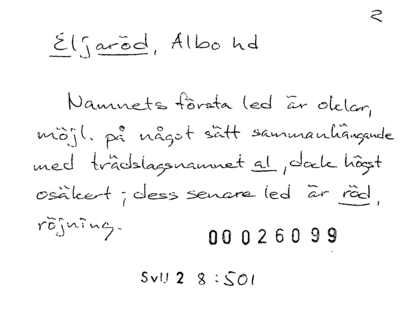 2
Eljaröd, Albo hd
Namnets första led är oklar,
möjl. på något sätt sammanhängande
med trädslagsnamnet al, dock högst
osäkert; dess senare led är röd,
röjning.
00026099
SvU 2 8:501